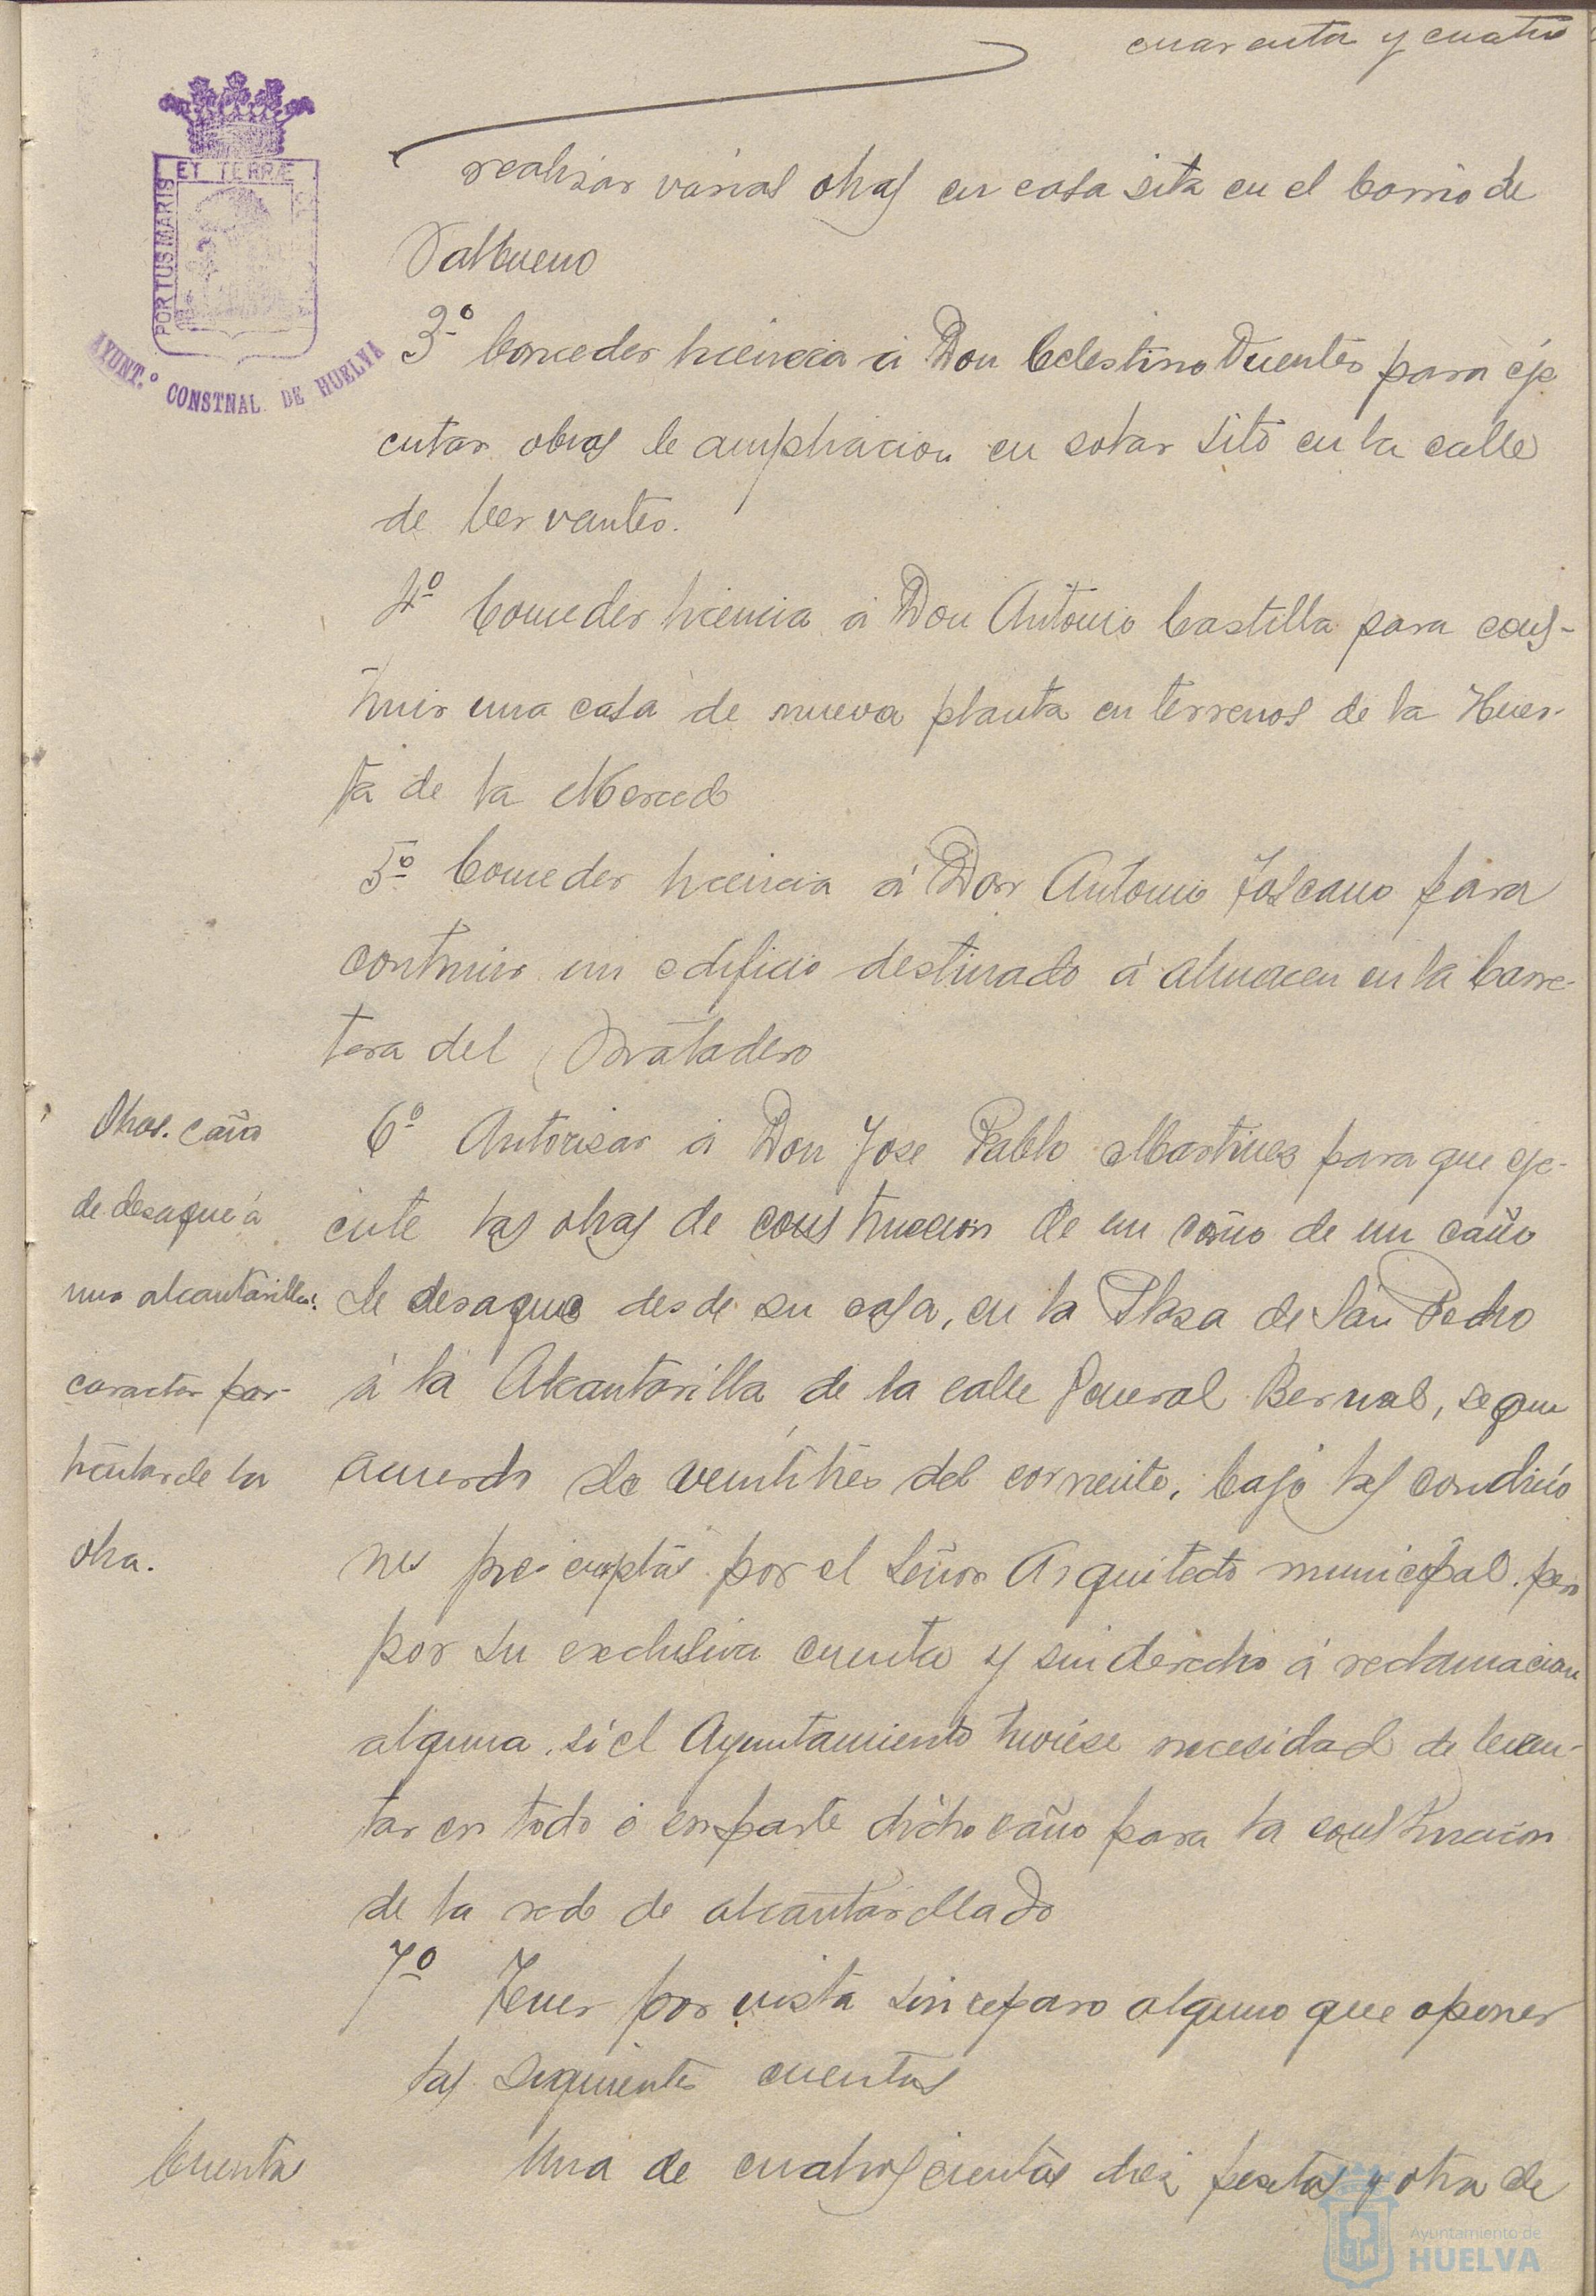 cuarenta y cuatro
PORTUS MARIS
ET TERRÆ
AYUNT.º CONSTNAL. DE HUELVA
realisar varias obras en casa sita en el barrio de
Valbueno
3º Conceder licencia á Don Celestino Fuentes para eje
cutar obras de ampliacion en solar sito en la calle
de Cervantes.
4º Conceder licencia á Don Antonio Castilla para cons-
truir una casa de nueva planta en terrenos de la Huer-
ta de la Merced
5º Conceder licencia á Don Antonio Toscano para
contruir un edificio destinado á almacen en la Carre-
tera del Matadero
Obras. caño
de desague á
una alcantarilla:
caracter par-
ticular de la
obra.
6º Autorisar á Don Jose Pablo Martines para que eje-
cute las obras de construccion de un caño de un caño
de desague desde su casa, en la Plasa de San Pedro
á la Alcantarilla de la calle General Bernal, segun
acuerdo de veintitres del corriente, bajo las condicio
nes preceptas por el Señor Arquitecto municipal. pero
por su exclusiva cuenta y sin derecho á reclamacion
alguna, si el Ayuntamiento tuviese necesidad de levan-
tar en todo ó en parte dicho caño para la construcion
de la red de alcantarillado
7º Tener por vista sin reparo alguno que oponer
las siguientes cuentas
Cuentas
Una de cuatroscientas diez pesetas y otra de
Ayuntamiento de
HUELVA